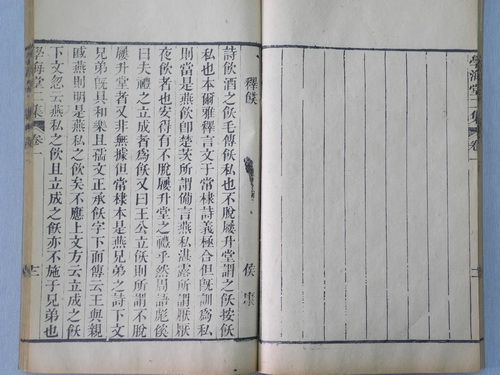 學海堂二集 卷一 二
釋飫 侯康
詩飲酒之飫毛傳飫私也不脫屨升堂謂之飫按飫
私也本爾雅釋言文于常棣詩義極合但旣訓為私
則當是燕飲卽楚茨所謂備言燕私湛露所謂厭厭
夜飲者也安得有不脫屨升堂之禮乎然周語彪傒
曰夫禮之立成者爲飫又曰王公立飫則所謂不脫
屨升堂者又非無據但常棣本是燕兄弟之詩下文
兄弟旣具和樂且孺文正承飫字下而傳云王與親
戚燕則明是燕私之飫矣不應上文方云立成之飫
下文忽云燕私之飫且立成之飫亦不施于兄弟也
學海堂二集 卷一 三